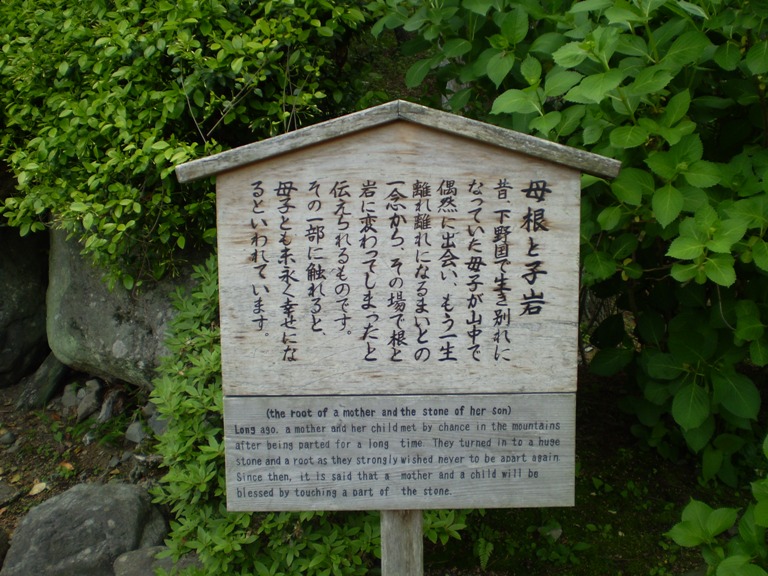 母根と子岩
昔、下野国で生き別れに
なっていた母子が山中で
偶然に出会い、もう一生
離れ離れになるまいとの
一念から、その場で根と
岩に変わってしまったと
伝えられるものです。
その一部に触れると、
母子とも末永く幸せにな
るといわれています。
(the root of a mother and the stone of her son)
Long ago, a mother and her child met by chance in the mountains
after being parted for a long time. They turned in to a huge
stone and a root as they strongly wished never to be apart again
Since then, it is said that a mother and a child will be
blessed by touching a part of the stone.